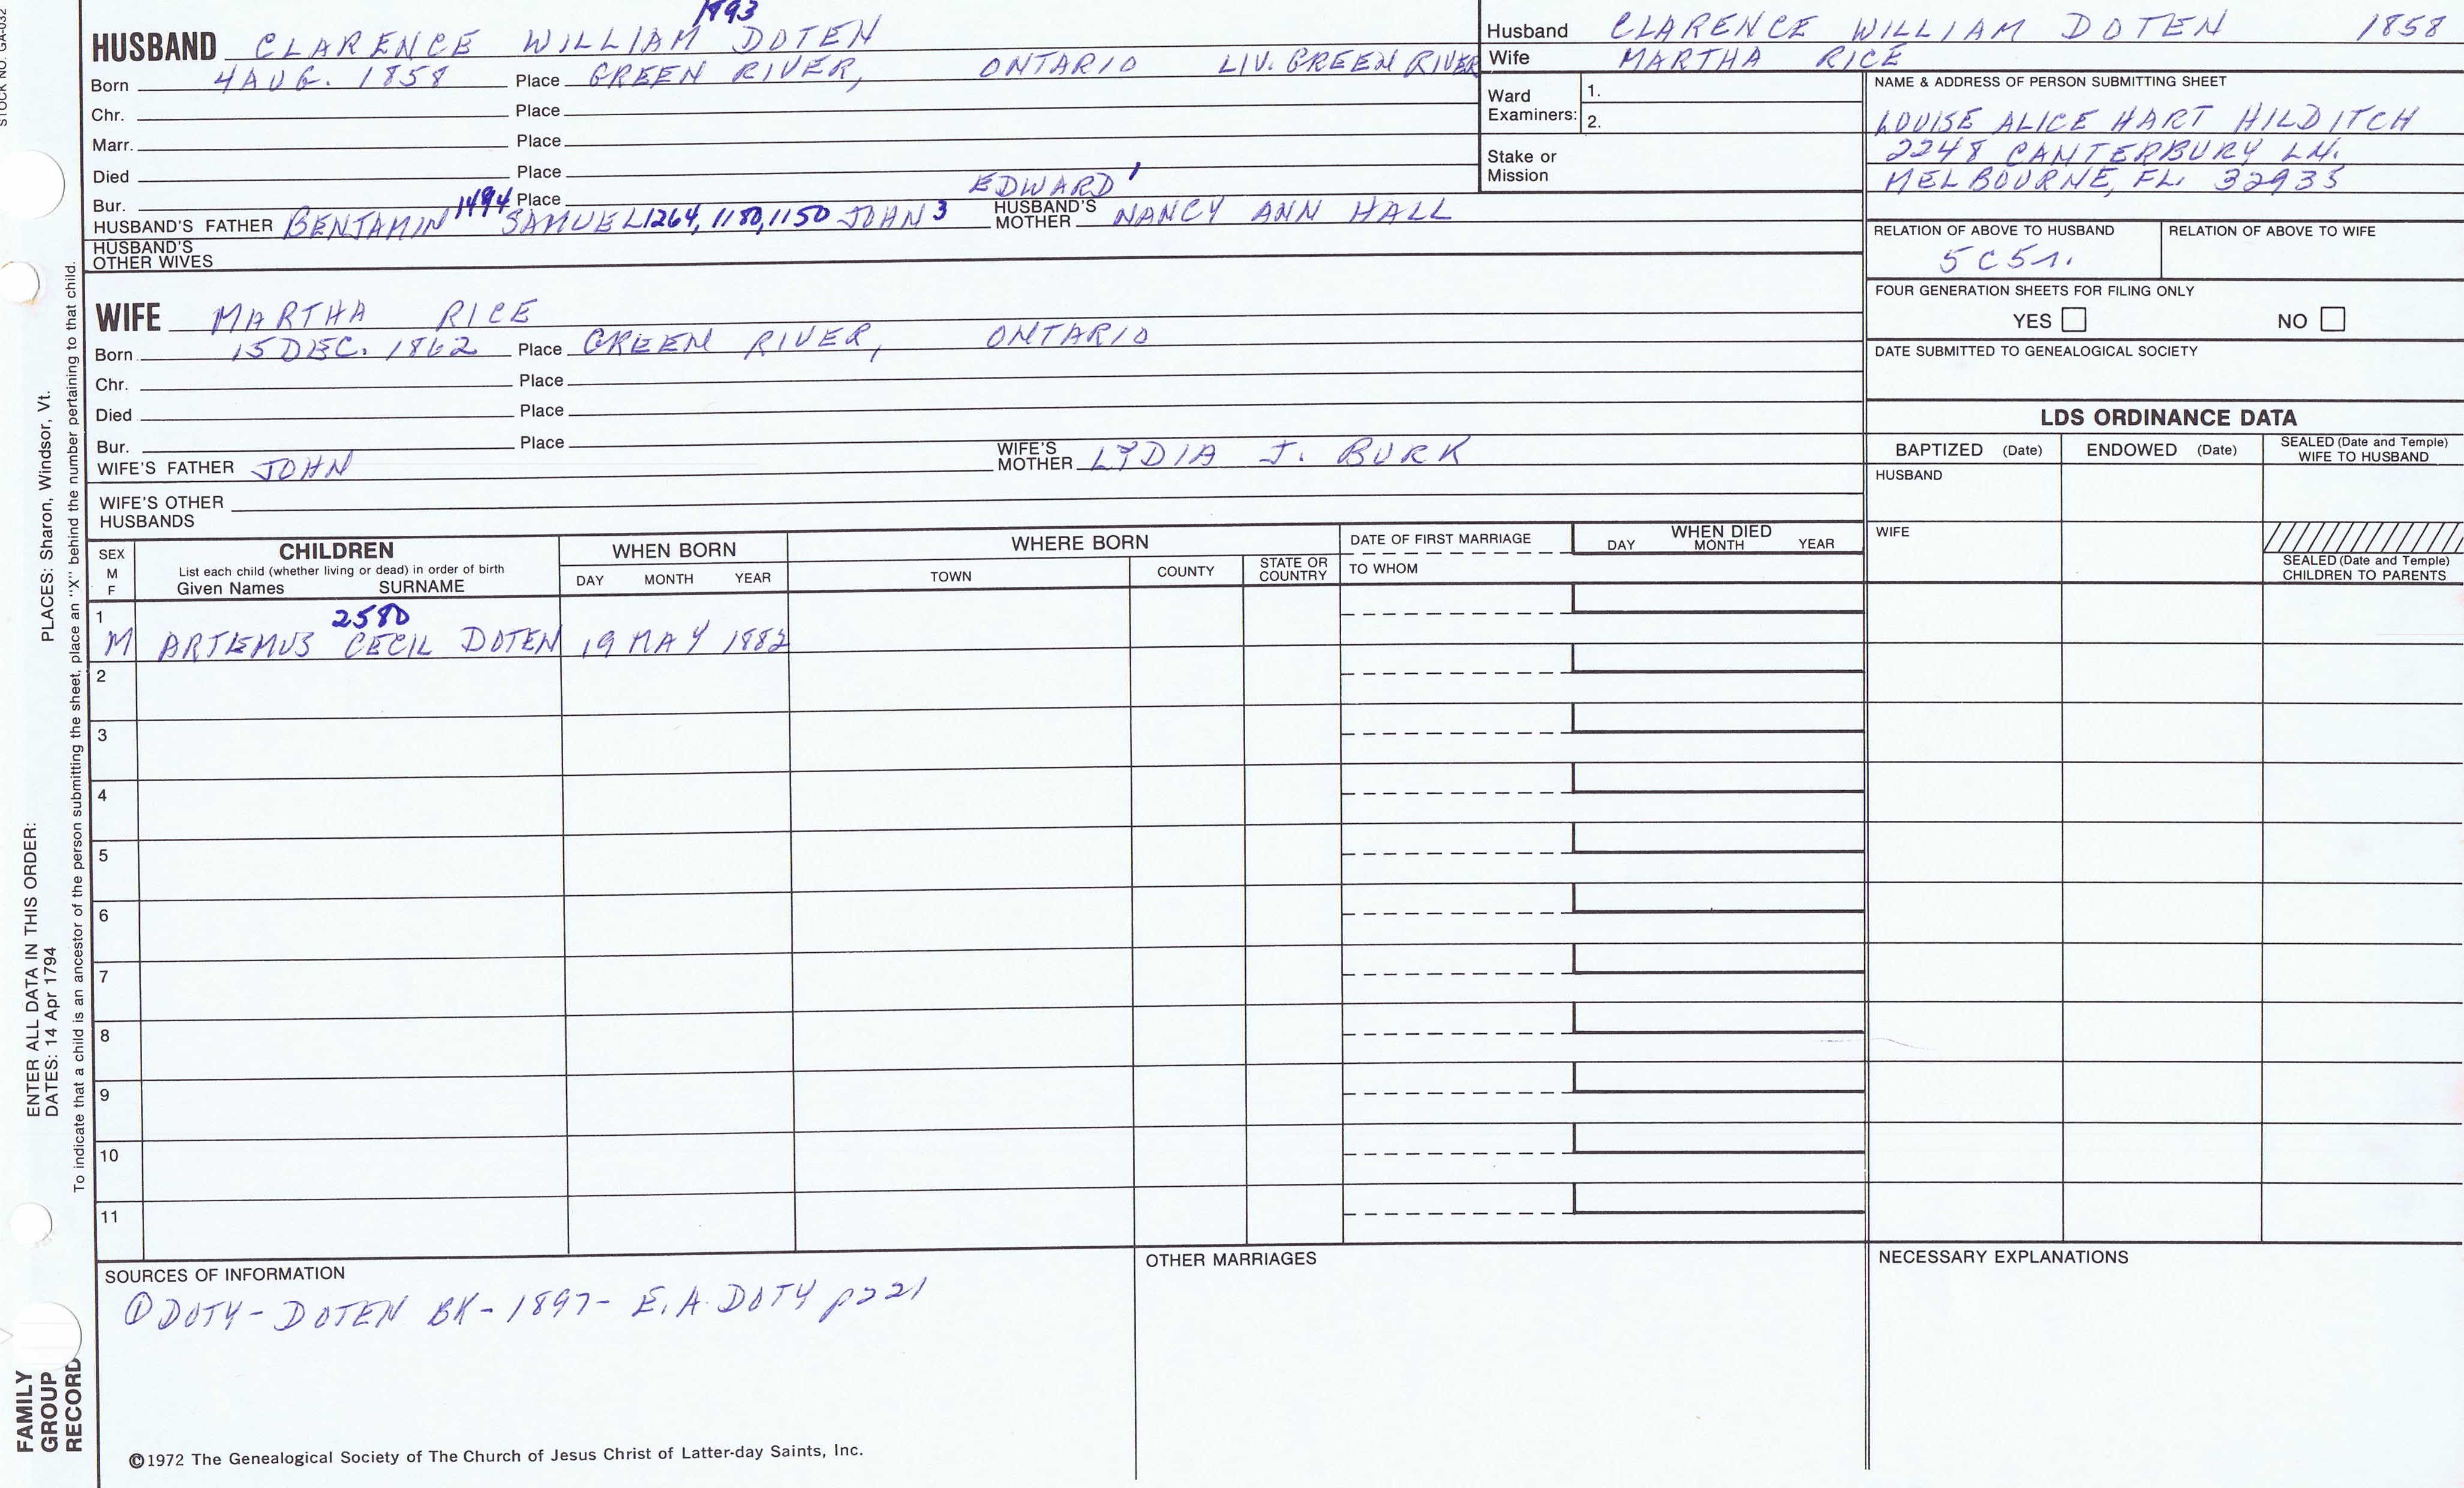 STOCK NO. GA-032
1993
HUSBAND CLARENCE WILLIAM DOTEN
Born 4 AUG. 1858 Place GREEN RIVER, ONTARIO LIV. GREEN RIVER
Chr. Place
Marr. Place
Died Place
Bur. Place
HUSBAND'S FATHER BENJAMIN 1494 SAMUEL 1264, 1180, 1150 JOHN 3 EDWARD 1
HUSBAND'S MOTHER NANCY ANN HALL
HUSBAND'S OTHER WIVES
WIFE MARTHA RICE
Born 15 DEC. 1862 Place GREEN RIVER, ONTARIO
Chr. Place
Died Place
Bur. Place
WIFE'S FATHER JOHN WIFE'S MOTHER LYDIA J. BURK
WIFE'S OTHER HUSBANDS
Husband CLARENCE WILLIAM DOTEN 1858
Wife MARTHA RICE
Ward Examiners: 1.
2.
Stake or Mission
NAME & ADDRESS OF PERSON SUBMITTING SHEET
LOUISE ALICE HART HILDITCH
2248 CANTERBURY LN.
MELBOURNE, FL. 32935
RELATION OF ABOVE TO HUSBAND RELATION OF ABOVE TO WIFE
5C5r.
FOUR GENERATION SHEETS FOR FILING ONLY
YES NO
DATE SUBMITTED TO GENEALOGICAL SOCIETY
LDS ORDINANCE DATA
BAPTIZED (Date) ENDOWED (Date) SEALED (Date and Temple) WIFE TO HUSBAND
HUSBAND
WIFE
SEALED (Date and Temple) CHILDREN TO PARENTS
SEX M F
CHILDREN
List each child (whether living or dead) in order of birth
Given Names SURNAME
WHEN BORN
DAY MONTH YEAR
WHERE BORN
TOWN COUNTY STATE OR COUNTRY
DATE OF FIRST MARRIAGE
TO WHOM
WHEN DIED
DAY MONTH YEAR
1 2580
M ARTEMUS CECIL DOTEN 19 MAY 1882
2
3
4
5
6
7
8
9
10
11
SOURCES OF INFORMATION
① DOTY-DOTEN BK-1897- E.A. DOTY p221
OTHER MARRIAGES
NECESSARY EXPLANATIONS
©1972 The Genealogical Society of The Church of Jesus Christ of Latter-day Saints, Inc.
FAMILY GROUP RECORD
ENTER ALL DATA IN THIS ORDER:
DATES: 14 Apr 1794
PLACES: Sharon, Windsor, Vt.
To indicate that a child is an ancestor of the person submitting the sheet, place an "X" behind the number pertaining to that child.